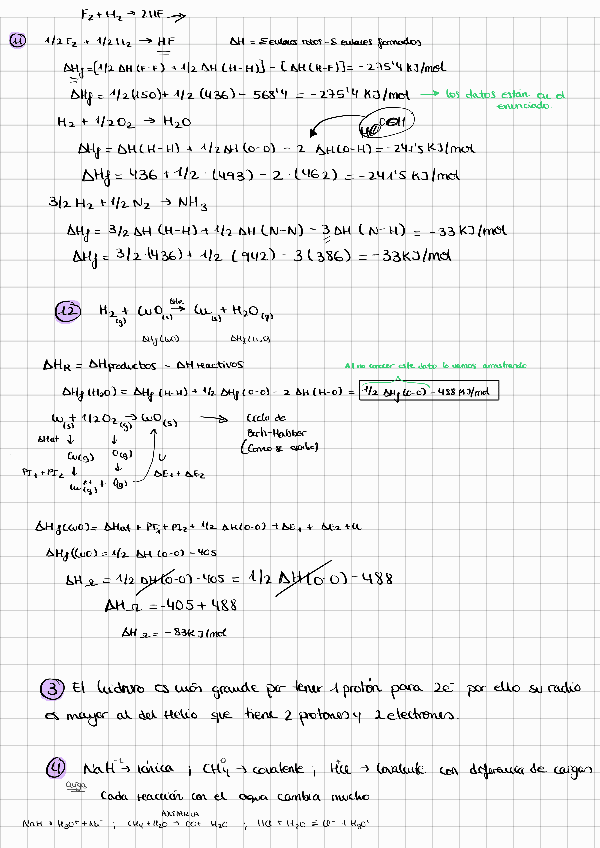 F₂ + H₂ → 2HF →
11 1/2 F₂ + 1/2 H₂ → HF ΔH = Σ enlaces rotos - Σ enlaces formados
ΔHf = [1/2 ΔH (F-F) + 1/2 ΔH (H-H)] - [ΔH(H-F)] = -275'4 KJ/mol
ΔHf = 1/2 (150) + 1/2 (436) - 568'4 = -275'4 KJ/mol → los datos están en el
enunciado.
H₂ + 1/2 O₂ → H₂O
ΔHf = ΔH(H-H) + 1/2 ΔH (O-O) - 2 ΔH(O-H) = -241'5 KJ/mol
ΔHf = 436 + 1/2 · (493) - 2 · (462) = -241'5 KJ/mol
3/2 H₂ + 1/2 N₂ → NH₃
ΔHf = 3/2 ΔH (H-H) + 1/2 ΔH (N-N) - 3 ΔH (N-H) = -33 KJ/mol
ΔHf = 3/2 · (436) + 1/2 (942) - 3 (386) = -33 KJ/mol
12 H₂(g) + CuO(s) → Cu(s) + H₂O(g)
ΔHf(CuO) ΔHf(H₂O)
ΔHR = ΔHproductos - ΔHreactivos
Al no conocer este dato lo vamos arrastrando
ΔHf(H₂O) = ΔHf (H-H) + 1/2 ΔHf (O-O) - 2 ΔH (H-O) = 1/2 ΔHf (O-O) - 488 KJ/mol
Cu(s) + 1/2 O₂(g) → CuO(s) → Ciclo de
ΔHat ↓ ↓ Born-Habber
Cu(g) O(g) (Como se escriba)
PI₁ + PI₂ ↓ ↓ U ΔE₁ + ΔE₂
ΔHf(CuO) = ΔHat + PI₁ + PI₂ + 1/2 ΔH(O-O) + ΔE₁ + ΔE₂ + U
ΔHf(CuO) = 1/2 ΔH (O-O) - 405
ΔH_R = 1/2 ΔH(O-O) - 405 = 1/2 ΔH(O-O) - 488
ΔH_R = -405 + 488
ΔH_R = -83 KJ/mol
3 El hidruro es más grande por tener 1 protón para 2e⁻ por ello su radio
es mayor al del Helio que tiene 2 protones y 2 electrones.
4 NaH⁻¹ → iónica ; CH₄⁰ → covalente ; HCl → covalente con diferencia de cargas
carga Cada reacción con el agua cambia mucho